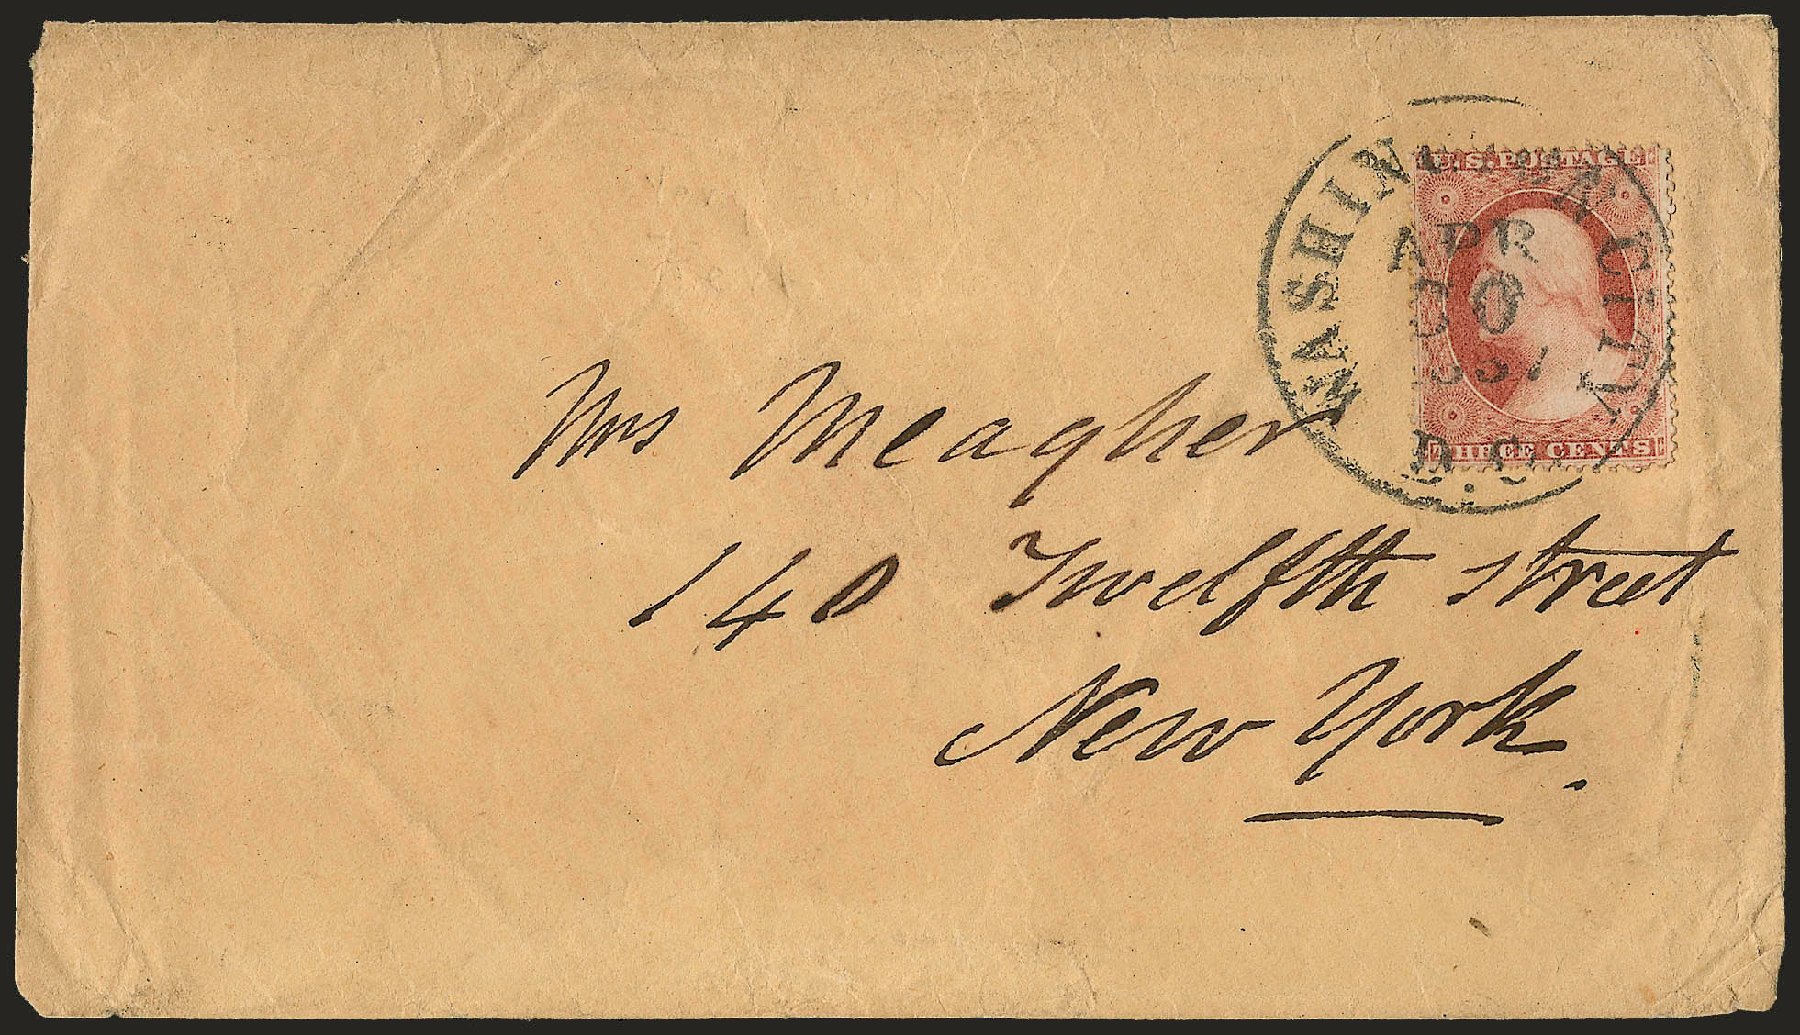 U.S. POSTAGE
WASHINGTON CITY
APR
30
1857
D.C.
THREE CENTS
Mrs Meagher
140 Twelfth street
New York.